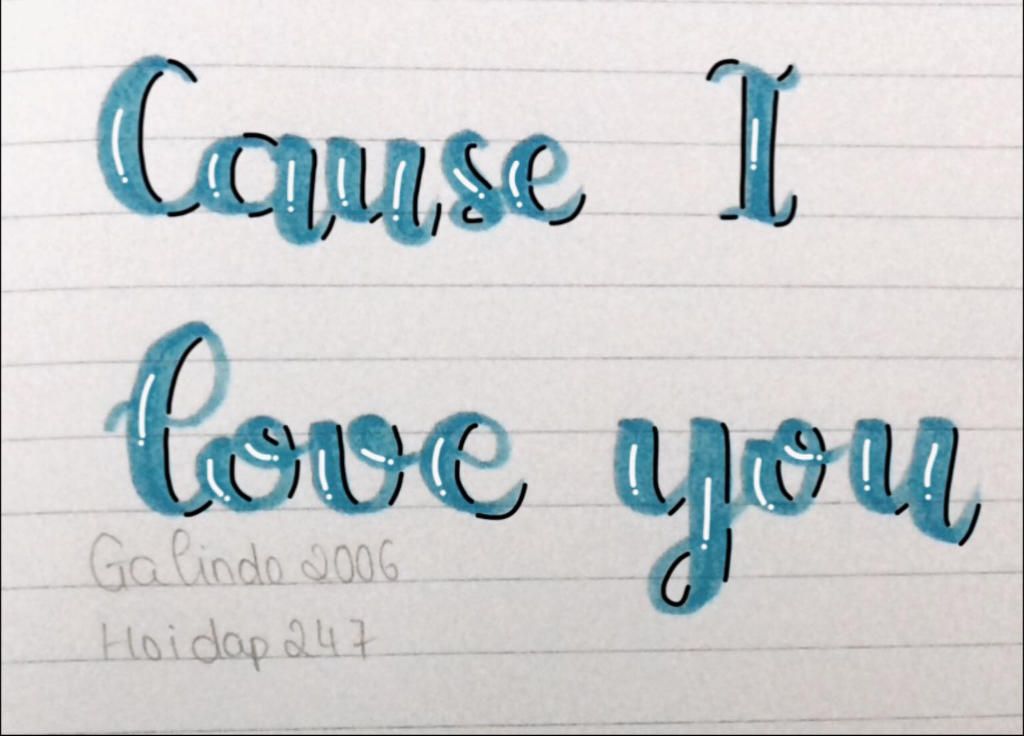 Cause I
love you
Galindo 2006
Hoidap 247